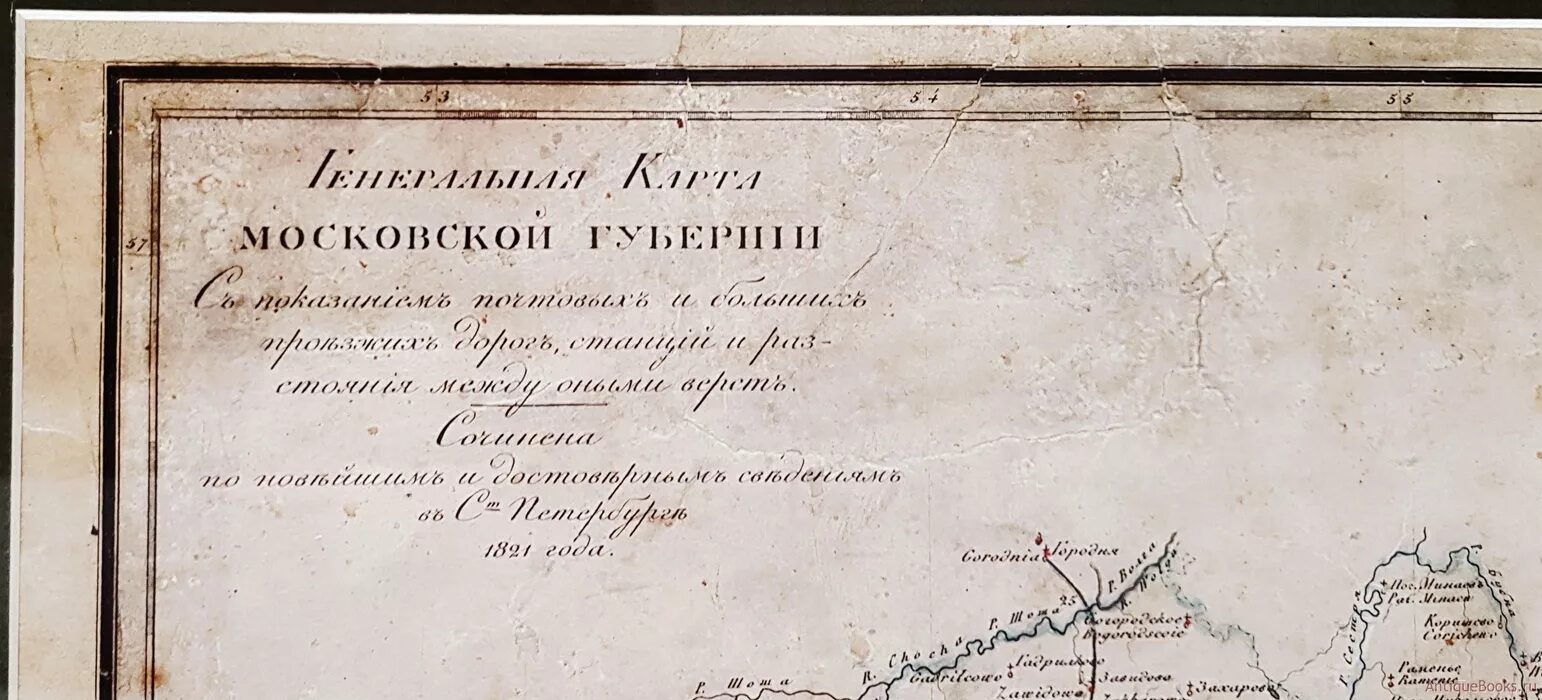 53 54 55
Генеральная Карта
МОСКОВСКОЙ ГУБЕРНІИ
57
Съ показаніемъ почтовыхъ и большихъ
проѣзжихъ дорогъ, станцій и раз-
стоянія между оными верстъ.
Сочинена
по новѣйшимъ и достовѣрнымъ свѣдѣніямъ
въ Ст Петербургѣ
1821 года.
Gorodnia Городня
Р. Волга
R. Wolga
Р. Шоша 25
R. Chocha
Р. Шоша
Богородское
Bogorodscoie
Гаврилково
Gavrilcowo
Завидово
Zawidowo
Захарово
Р. Сестря
Пог. Минаевъ
Pat. Minaew
Коришево
Corichewo
Раменье
Ramenie
AntiqueBooks.ru